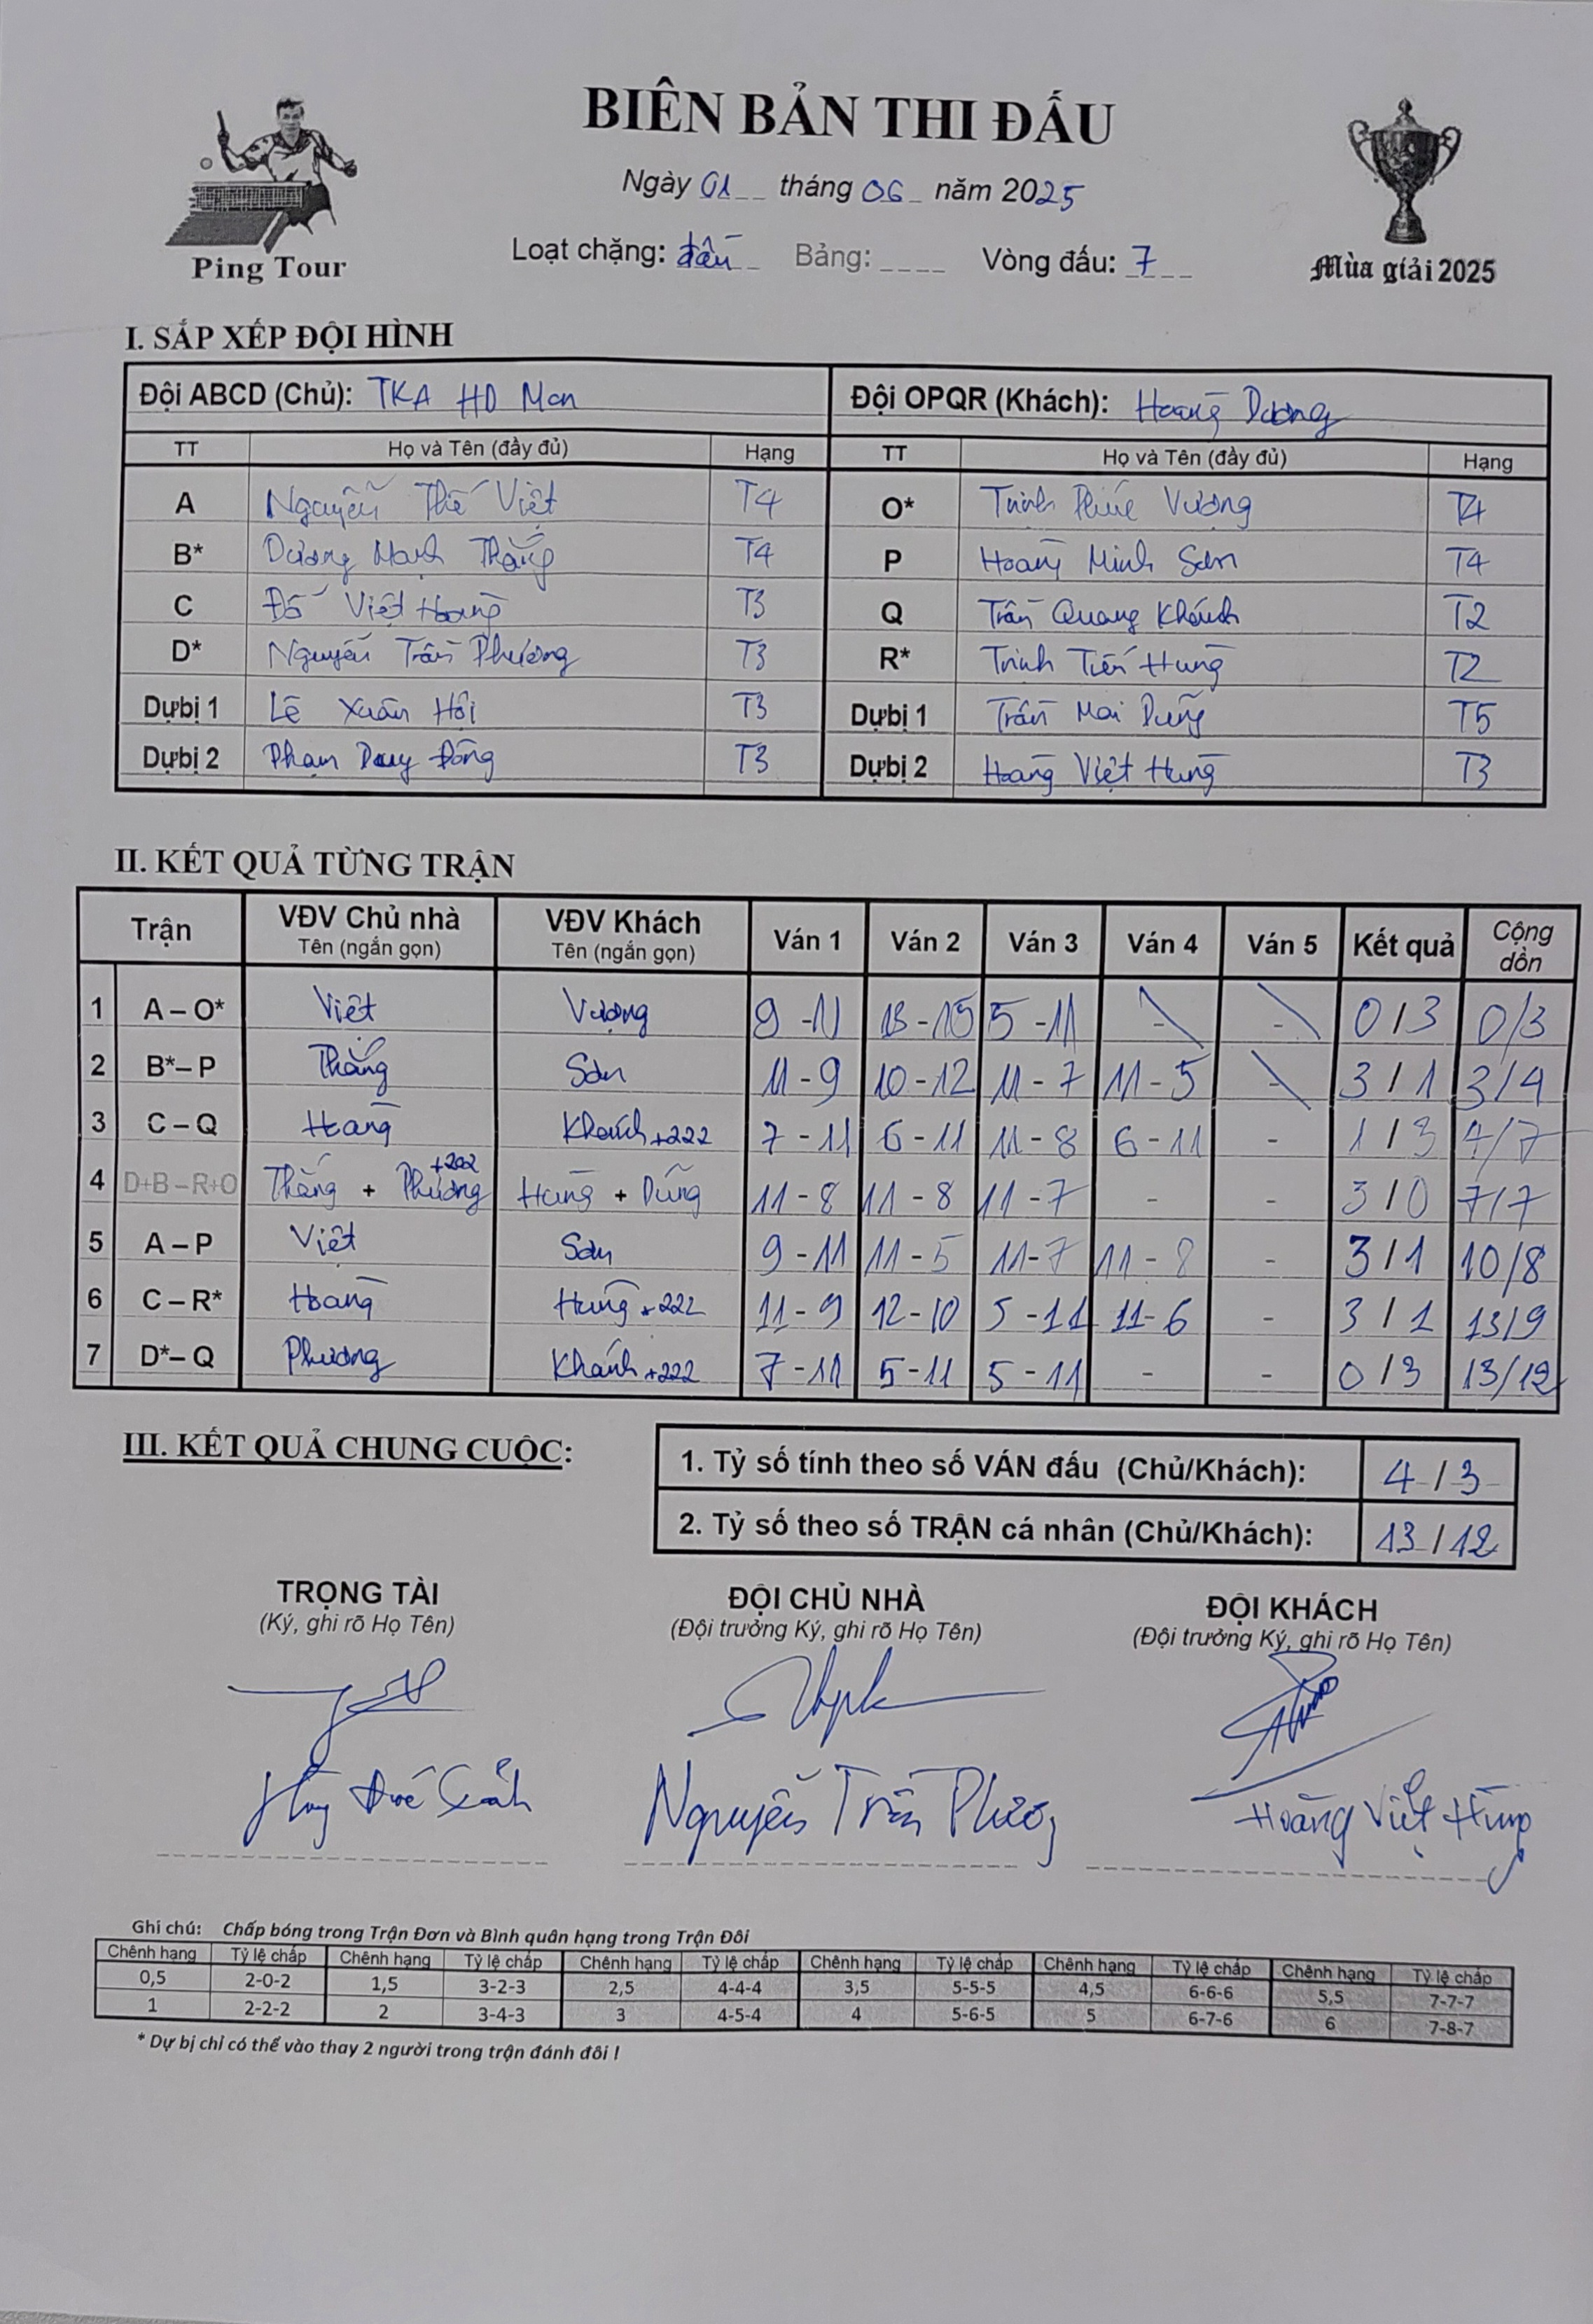 BIÊN BẢN THI ĐẤU
Ngày 01 tháng 06 năm 2025
Loạt chặng: đầu Bảng: ____ Vòng đấu: 7
Ping Tour
Mùa giải 2025
I. SẮP XẾP ĐỘI HÌNH
Đội ABCD (Chủ): TKA HD Mon Đội OPQR (Khách): Hoàng Dương
TT Họ và Tên (đầy đủ) Hạng TT Họ và Tên (đầy đủ) Hạng
A Nguyễn Thế Việt T4 O* Trịnh Phúc Vượng T4
B* Dương Mạnh Thắng T4 P Hoàng Minh Sơn T4
C Đỗ Việt Hoàng T3 Q Trần Quang Khánh T2
D* Nguyễn Trần Phương T3 R* Trịnh Tiến Hưng T2
Dự bị 1 Lê Xuân Hội T3 Dự bị 1 Trần Mai Dũng T5
Dự bị 2 Phạm Duy Đông T3 Dự bị 2 Hoàng Việt Hưng T3
II. KẾT QUẢ TỪNG TRẬN
Trận VĐV Chủ nhà Tên (ngắn gọn) VĐV Khách Tên (ngắn gọn) Ván 1 Ván 2 Ván 3 Ván 4 Ván 5 Kết quả Cộng dồn
1 A – O* Việt Vượng 9 - 11 13 - 15 5 - 11 - - 0 / 3 0/3
2 B* – P Thắng Sơn 11 - 9 10 - 12 11 - 7 11 - 5 - 3 / 1 3/4
3 C – Q Hoàng Khánh +222 7 - 11 6 - 11 11 - 8 6 - 11 - 1 / 3 4/7
4 D+B – R+O Thắng + Phương +202 Hưng + Dũng 11 - 8 11 - 8 11 - 7 - - 3 / 0 7/7
5 A – P Việt Sơn 9 - 11 11 - 5 11 - 7 11 - 8 - 3 / 1 10/8
6 C – R* Hoàng Hưng +222 11 - 9 12 - 10 5 - 11 11 - 6 - 3 / 1 13/9
7 D* – Q Phương Khánh +222 7 - 11 5 - 11 5 - 11 - - 0 / 3 13/12
III. KẾT QUẢ CHUNG CUỘC:
1. Tỷ số tính theo số VÁN đấu (Chủ/Khách): 4 / 3
2. Tỷ số theo số TRẬN cá nhân (Chủ/Khách): 13 / 12
TRỌNG TÀI ĐỘI CHỦ NHÀ ĐỘI KHÁCH
(Ký, ghi rõ Họ Tên) (Đội trưởng Ký, ghi rõ Họ Tên) (Đội trưởng Ký, ghi rõ Họ Tên)
Nguyễn Trần Phương Hoàng Việt Hưng
Ghi chú: Chấp bóng trong Trận Đơn và Bình quân hạng trong Trận Đôi
Chênh hạng Tỷ lệ chấp Chênh hạng Tỷ lệ chấp Chênh hạng Tỷ lệ chấp Chênh hạng Tỷ lệ chấp Chênh hạng Tỷ lệ chấp Chênh hạng Tỷ lệ chấp
0,5 2-0-2 1,5 3-2-3 2,5 4-4-4 3,5 5-5-5 4,5 6-6-6 5,5 7-7-7
1 2-2-2 2 3-4-3 3 4-5-4 4 5-6-5 5 6-7-6 6 7-8-7
* Dự bị chỉ có thể vào thay 2 người trong trận đánh đôi !